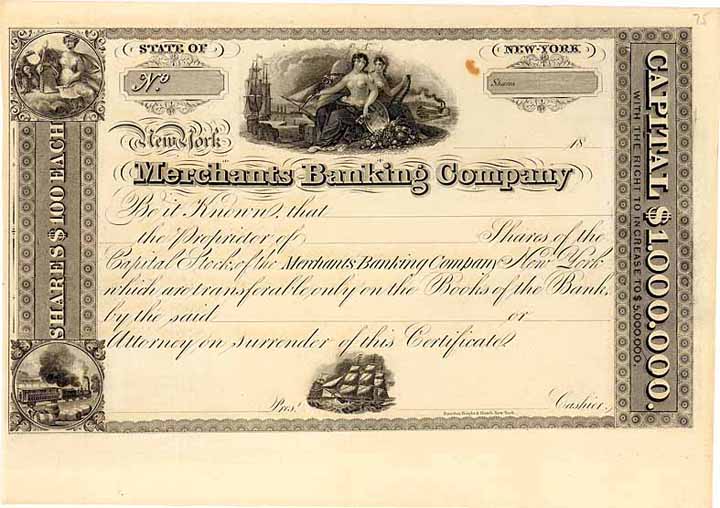 75
STATE OF
NEW-YORK
No
Shares
New York
18
Merchants Banking Company
Be it Known, that
the Proprietor of Shares of the
Capital Stock, of the Merchants Banking Company New York
which are transferable, only on the Books of the Bank,
by the said or
Attorney, on surrender of this Certificate
Pres.t
Cashier.
SHARES $100 EACH
CAPITAL $1,000,000.
WITH THE RIGHT TO INCREASE TO $5,000,000.